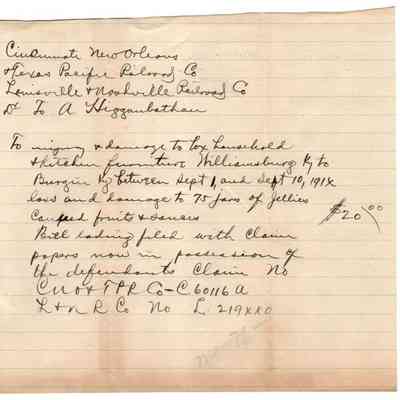 Cincinnati New Orleans
& Texas Pacific Railroad Co
Louisville & Nashville Railroad Co
Dr To A Higganbotham
To injury & damage to box household
& kitchen furniture Williamsburg Ky to
Burgin Ky between Sept 1, and Sept 10, 191x
loss and damage to 75 jars of Jellies
Canned fruits & sauces $20.00
Bill lading filed with Claim
papers now in possession of
the defendants Claim No
C N O & T P R Co - C 60116 A
L & N R Co No L 219xx0